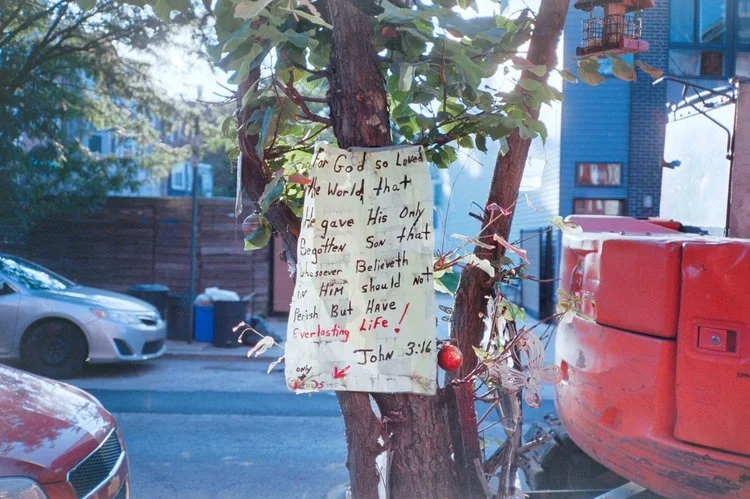 For God so Loved
the World that
He gave His Only
Begotten Son that
Whosoever Believeth
in Him should Not
Perish But Have
Everlasting Life!
John 3:16
only